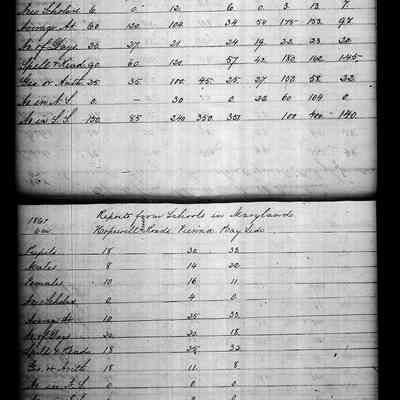 Free Scholars 6 0 12 6 0 3 13 7
Average At. 60 120 104 34 50 175 153 97
No of Days 22 27 21 24 19 22 23 22
Spell & Read 90 60 120 57 42 180 162 145
Geo & Arith 25 35 100 45 25 27 102 58 22
No in N.S. 0 — 30 0 22 60 104 0
No in S.S. 150 85 240 350 300 100 400 140
1867 Reports from Schools in Maryland
Hopewell Roads Vienna Bay Side
Pupils 18 30 33
Males 8 14 22
Females 10 16 11
No Scholars 0 4 0
Average At 10 25 33
No of Days 20 20 18
Spell & Read 18 25 32
Geo. & Arith 18 11 8
No in N.S 0 0 0
0 0 0